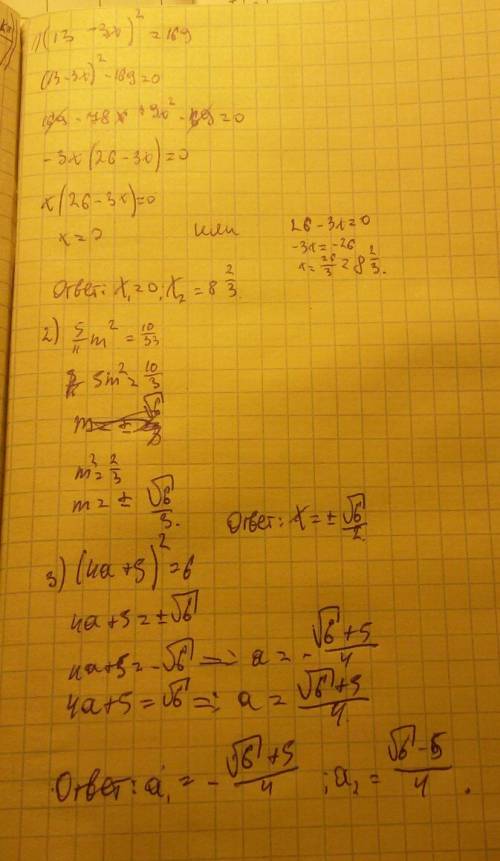 1) (13 - 3x)² = 169
(13-3x)² - 169 = 0
169 - 78x + 9x² - 169 = 0
-3x(26-3x) = 0
x(26-3x) = 0
x = 0 или 26-3x = 0
-3x = -26
x = 26/3 = 8 2/3.
Ответ: x₁ = 0; x₂ = 8 2/3.
2) 5/11 m² = 10/33
5m² = 10/3
m = ± √6/3
m² = 2/3
m = ± √6/3.
Ответ: x = ± √6/2.
3) (4a+5)² = 6
4a+5 = ±√6
4a+5 = -√6 => a = - √6+5/4
4a+5 = √6 => a = √6+5/4.
Ответ: a₁ = - √6+5/4 ; a₂ = √6-5/4.